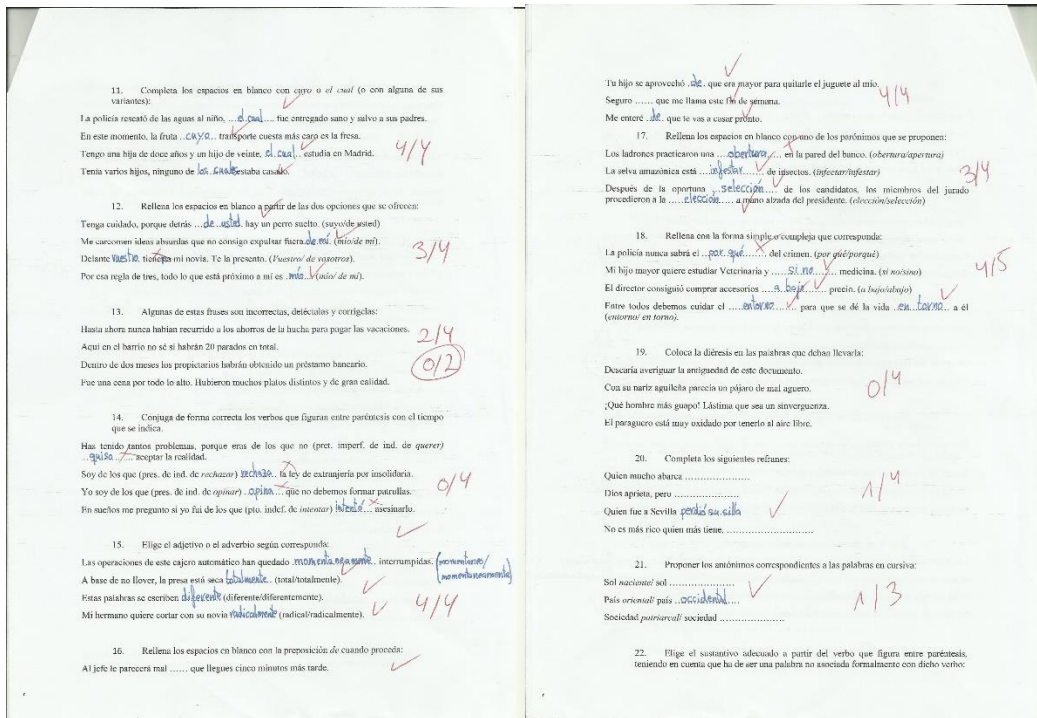 11. Completa los espacios en blanco con cuyo o el cual (o con alguna de sus
variantes):
La policía rescató de las aguas al niño, ...el cual.... fue entregado sano y salvo a sus padres.
En este momento, la fruta ..cuyo.. transporte cuesta más caro es la fresa.
Tengo una hija de doce años y un hijo de veinte, el cual.. estudia en Madrid.
Tenía varios hijos, ninguno de los cuales estaba casado.
4/4
12. Rellena los espacios en blanco a partir de las dos opciones que se ofrecen:
Tenga cuidado, porque detrás ...de usted. hay un perro suelto. (suyo/de usted)
Me carcomen ideas absurdas que no consigo expulsar fuera de mí. (mío/de mí).
Delante vuestro. tienen a mi novia. Te la presento. (Vuestro/ de vosotros).
Por esa regla de tres, todo lo que está próximo a mí es .mío.. (mío/ de mí).
3/4
13. Algunas de estas frases son incorrectas, detéctalas y corrígelas:
Hasta ahora nunca habían recurrido a los ahorros de la hucha para pagar las vacaciones.
2/4
Aquí en el barrio no sé si habrán 20 parados en total.
0/2
Dentro de dos meses los propietarios habrán obtenido un préstamo bancario.
Fue una cena por todo lo alto. Hubieron muchos platos distintos y de gran calidad.
14. Conjuga de forma correcta los verbos que figuran entre paréntesis con el tiempo
que se indica.
Has tenido tantos problemas, porque eras de los que no (pret. imperf. de ind. de querer)
..quiso... aceptar la realidad.
Soy de los que (pres. de ind. de rechazar) rechaza.. la ley de extranjería por insolidaria.
Yo soy de los que (pres. de ind. de opinar) ..opina.... que no debemos formar patrullas.
0/4
En sueños me pregunto si yo fui de los que (pto. indef. de intentar) intentó... asesinarlo.
15. Elige el adjetivo o el adverbio según corresponda:
Las operaciones de este cajero automático han quedado .momentáneamente.. interrumpidas. (momentáneo/
momentáneamente)
A base de no llover, la presa está seca totalmente.. (total/totalmente).
Estas palabras se escriben diferente (diferente/diferentemente).
Mi hermano quiere cortar con su novia radicalmente (radical/radicalmente).
4/4
16. Rellena los espacios en blanco con la preposición de cuando proceda:
Al jefe le parecerá mal ...... que llegues cinco minutos más tarde.
Tu hijo se aprovechó ..de.. que era mayor para quitarle el juguete al mío.
Seguro ...... que me llama este fin de semana.
4/4
Me enteré ..de.. que te vas a casar pronto.
17. Rellena los espacios en blanco con uno de los parónimos que se proponen:
Los ladrones practicaron una ....obertura.... en la pared del banco. (obertura/apertura)
La selva amazónica está ....infestar...... de insectos. (infectar/infestar)
3/4
Después de la oportuna .selección.... de los candidatos, los miembros del jurado
procedieron a la .....elección..... a mano alzada del presidente. (elección/selección)
18. Rellena con la forma simple o compleja que corresponda:
La policía nunca sabrá el ..por qué...... del crimen. (por qué/porqué)
Mi hijo mayor quiere estudiar Veterinaria y .....si no..... medicina. (si no/sino)
4/5
El director consiguió comprar accesorios ....a bajo..... precio. (a bajo/abajo)
Entre todos debemos cuidar el ....entorno..... para que se dé la vida ..en torno.. a él
(entorno/ en torno).
19. Coloca la diéresis en las palabras que deban llevarla:
Desearía averiguar la antiguedad de este documento.
Con su nariz aguileña parecía un pájaro de mal aguero.
0/4
¡Qué hombre más guapo! Lástima que sea un sinverguenza.
El paraguero está muy oxidado por tenerlo al aire libre.
20. Completa los siguientes refranes:
Quien mucho abarca ....................
Dios aprieta, pero ....................
1/4
Quien fue a Sevilla perdió su silla
No es más rico quien más tiene. ........................
21. Proponer los antónimos correspondientes a las palabras en cursiva:
Sol naciente/ sol ......................
País oriental/ país ..occidental....
1/3
Sociedad patriarcal/ sociedad ......................
22. Elige el sustantivo adecuado a partir del verbo que figura entre paréntesis,
teniendo en cuenta que ha de ser una palabra no asociada formalmente con dicho verbo: